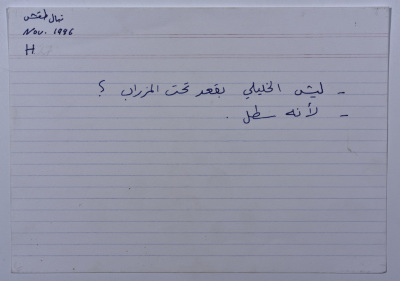 نهال طقش
Nov. 1996
H
- ليش الخليلي بقعد تحت المزراب ؟
- لأنه سطل .